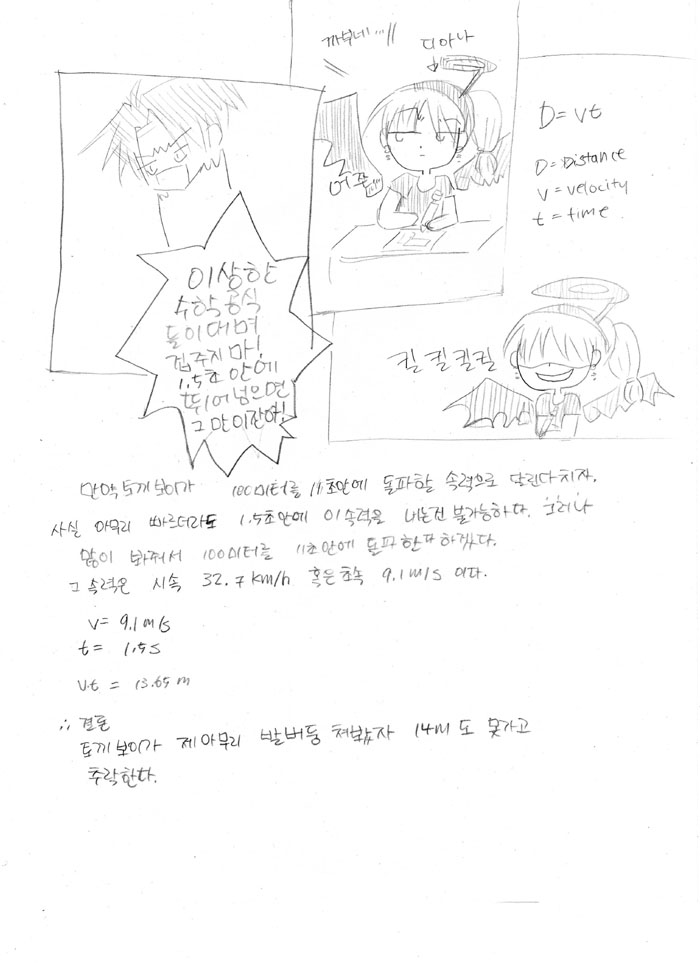 디아나
D = vt
D = Distance
v = velocity
t = time
이상한
수학 공식
들이대며
겁주지 마!
1.5초 안에
뛰어넘으면
그만이잖아!
킬킬킬킬
만약 토끼보이가 100미터를 11초안에 돌파할 속력으로 달린다 치자.
사실 아무리 빠르더라도 1.5초안에 이 속력을 내는건 불가능하다. 그러나
많이 봐줘서 100미터를 11초안에 돌파한다 하겠다.
그 속력은 시속 32.7 km/h 혹은 초속 9.1 m/s 이다.
v = 9.1 m/s
t = 1.5 s
v.t = 13.65 m
∴ 결론
토끼보이가 제아무리 발버둥 쳐봤자 14M도 못가고
추락한다.